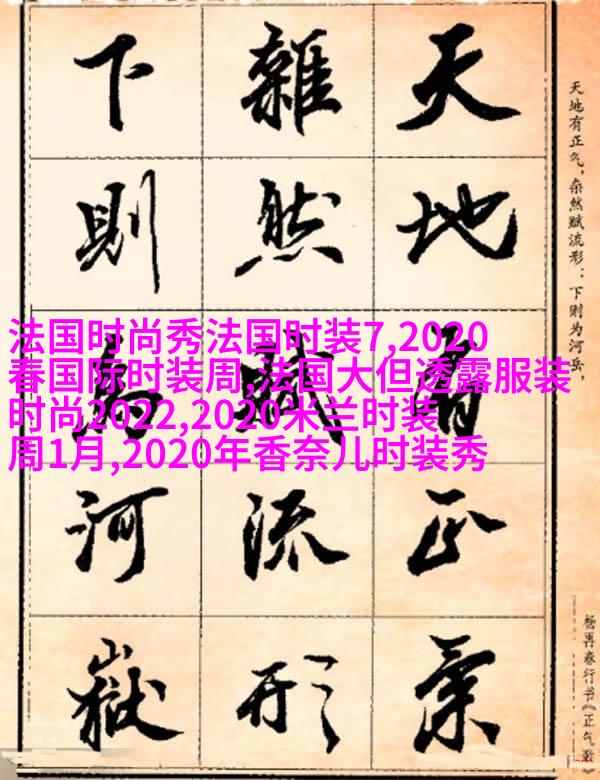 天地有正气，杂然赋流形：下则为河岳，
杨再春行书《正气歌》
天地有正氣
雜然賦流形
下則為河嶽
法国时尚秀法国时装7,2020
春国际时装周,法国大但透露服装
时尚2022,2020米兰时装
周1月,2020年香奈儿时装秀